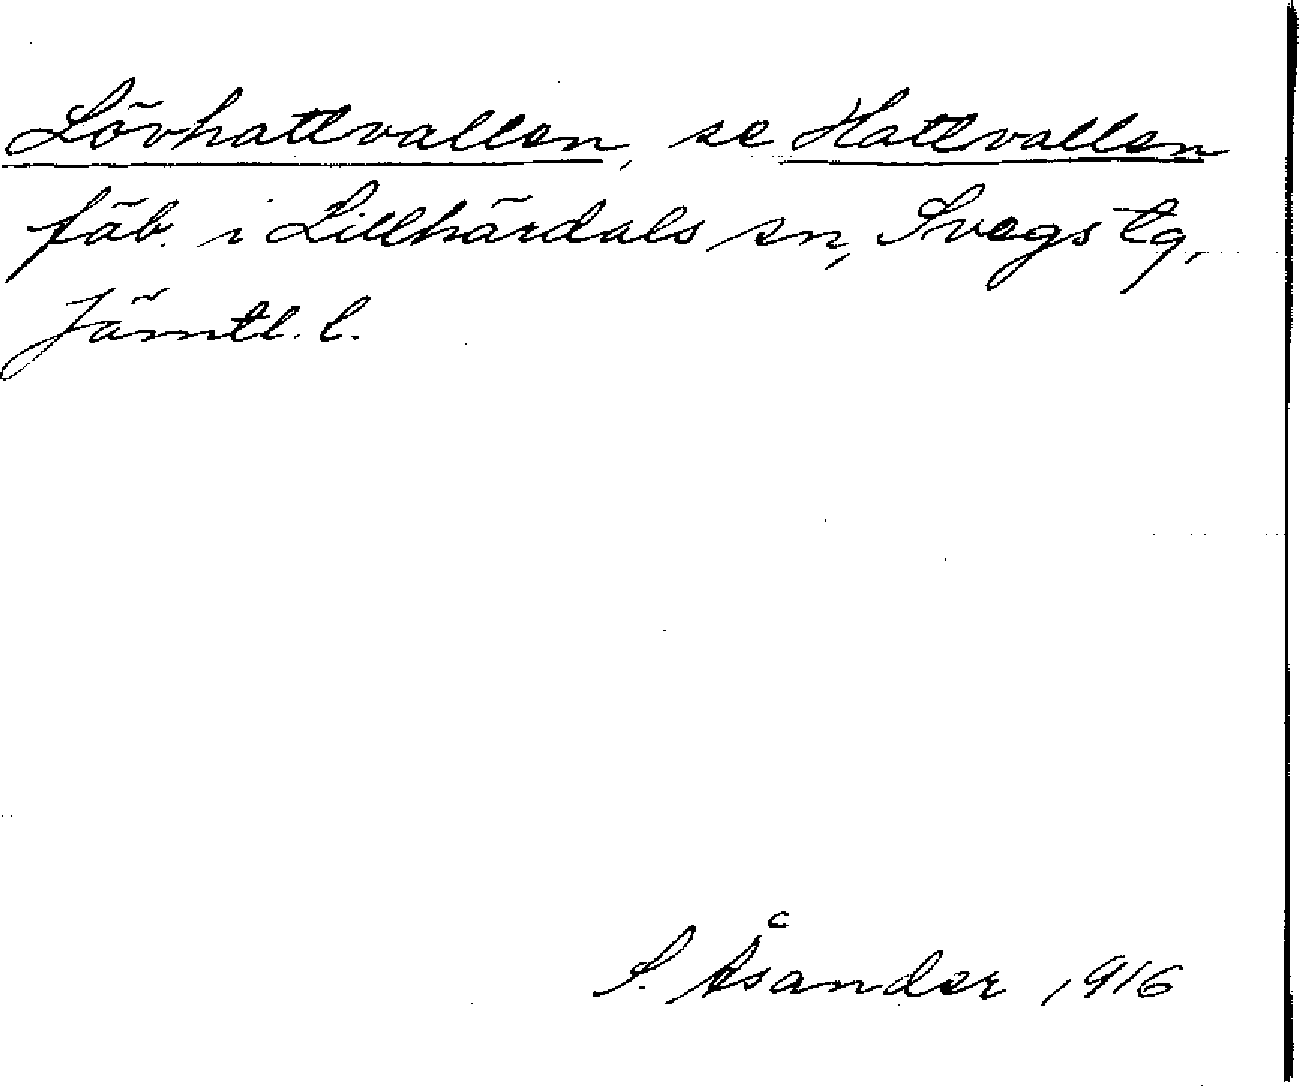 Lövhattvallen, se Hattvallen
fäb. i Lillhärdals sn, Svegs tg,
Jämtl. l.
S. Åsander 1916